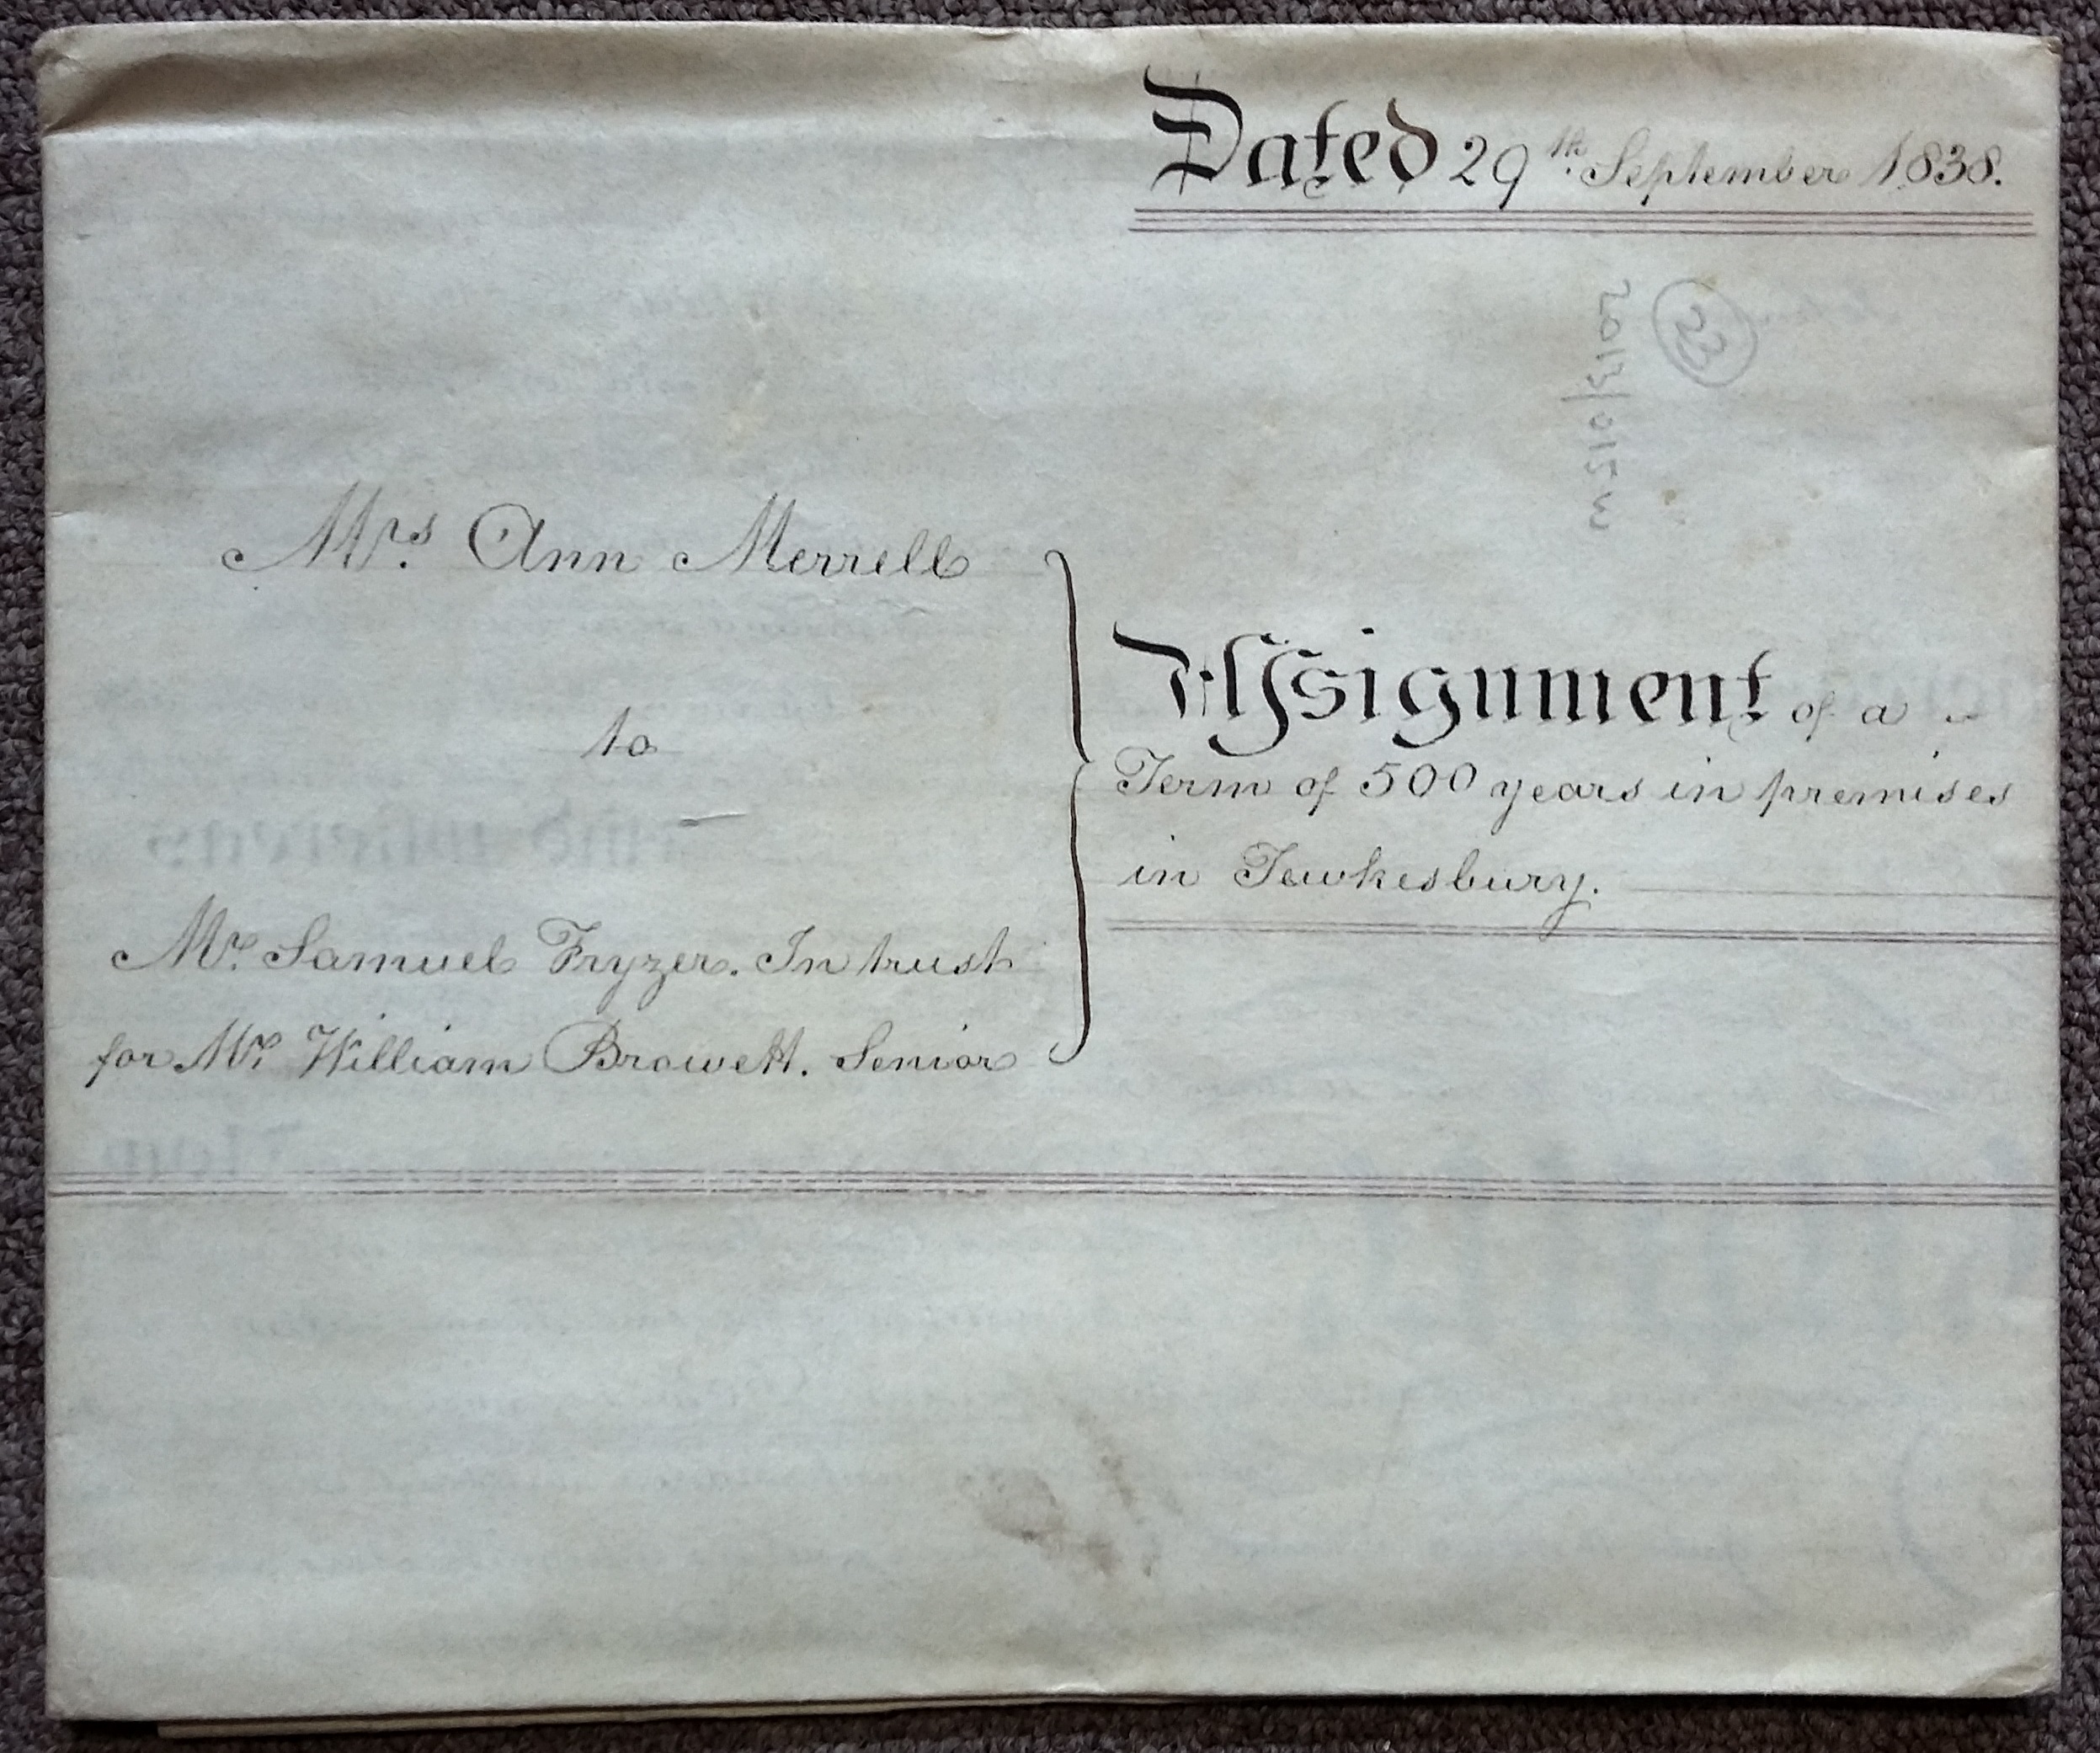 Dated 29th. September 1838.
23
2013/012W
Mrs. Ann Merrell
to
Mr. Samuel Fryzer. In trust
for Mr. William Browett. Senior
Assignment of a
Term of 500 years in premises
in Tewkesbury.